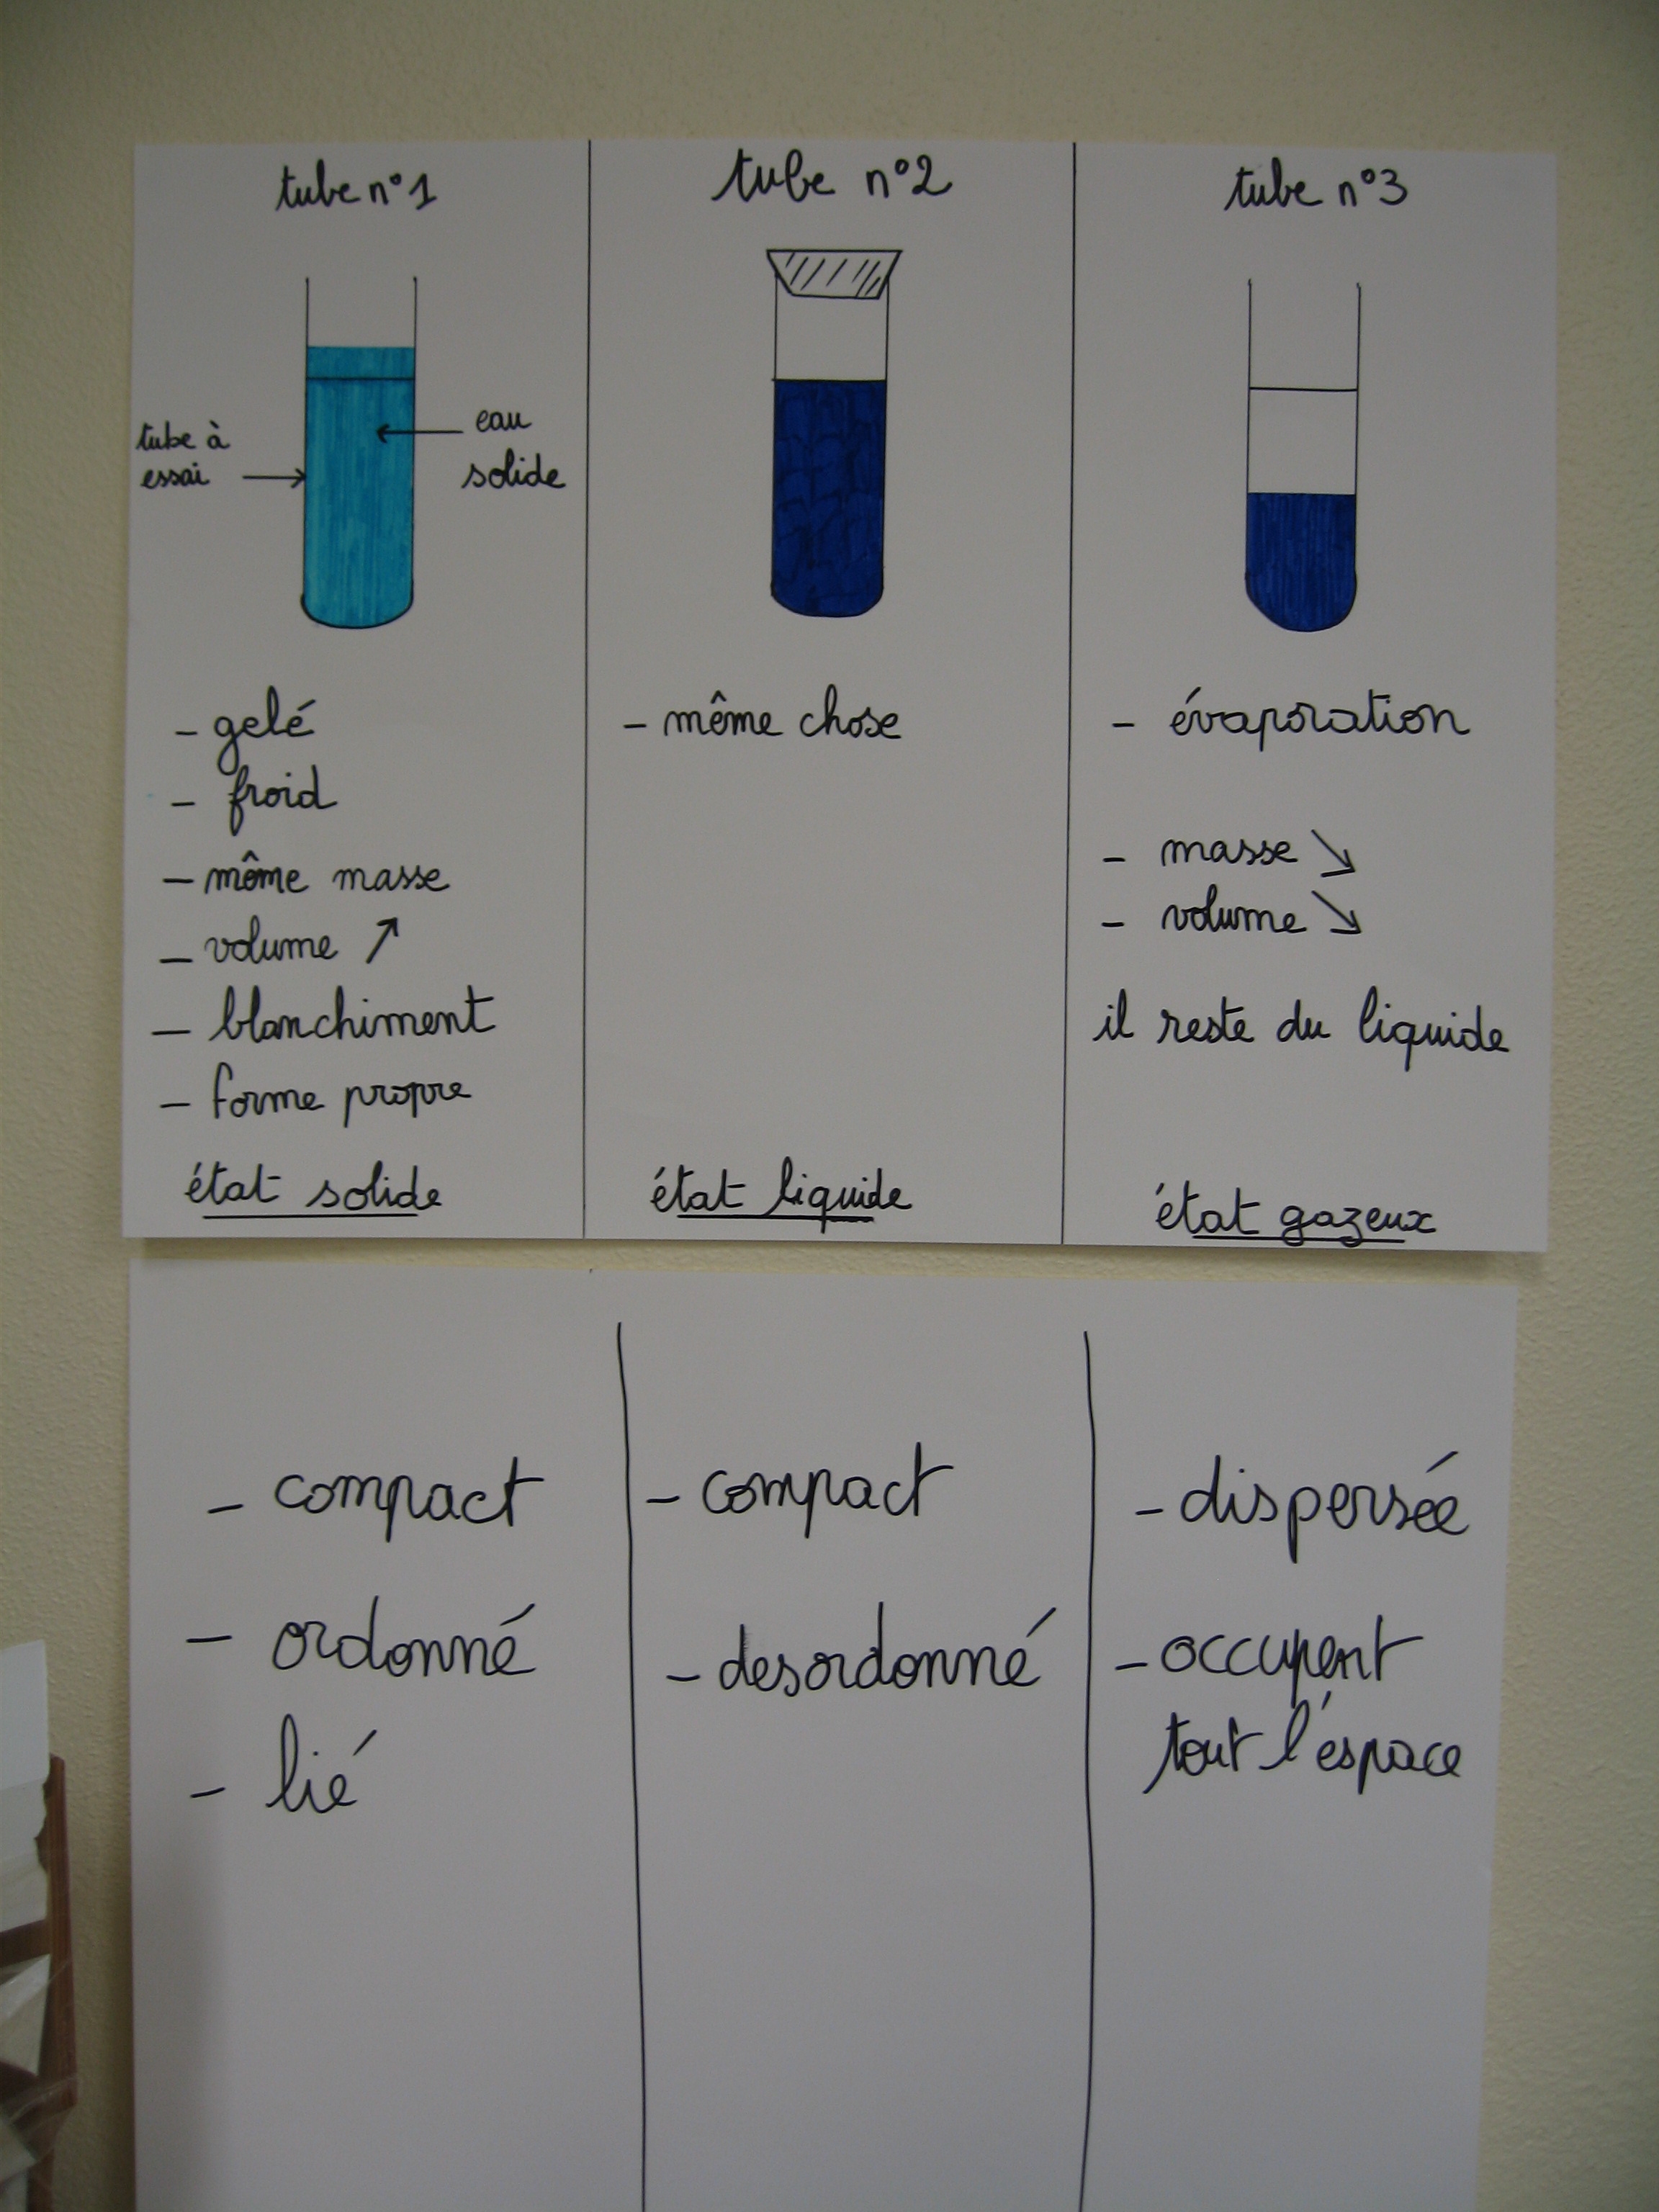 tube n°1
tube à
essai
eau
solide
- gelé
- froid
- même masse
- volume ↗
- blanchiment
- forme propre
état solide
tube n°2
- même chose
état liquide
tube n°3
- évaporation
- masse ↘
- volume ↘
il reste du liquide
état gazeux
- compact
- ordonné
- lié
- compact
- desordonné
- dispersée
- occupent
tout l'éspace